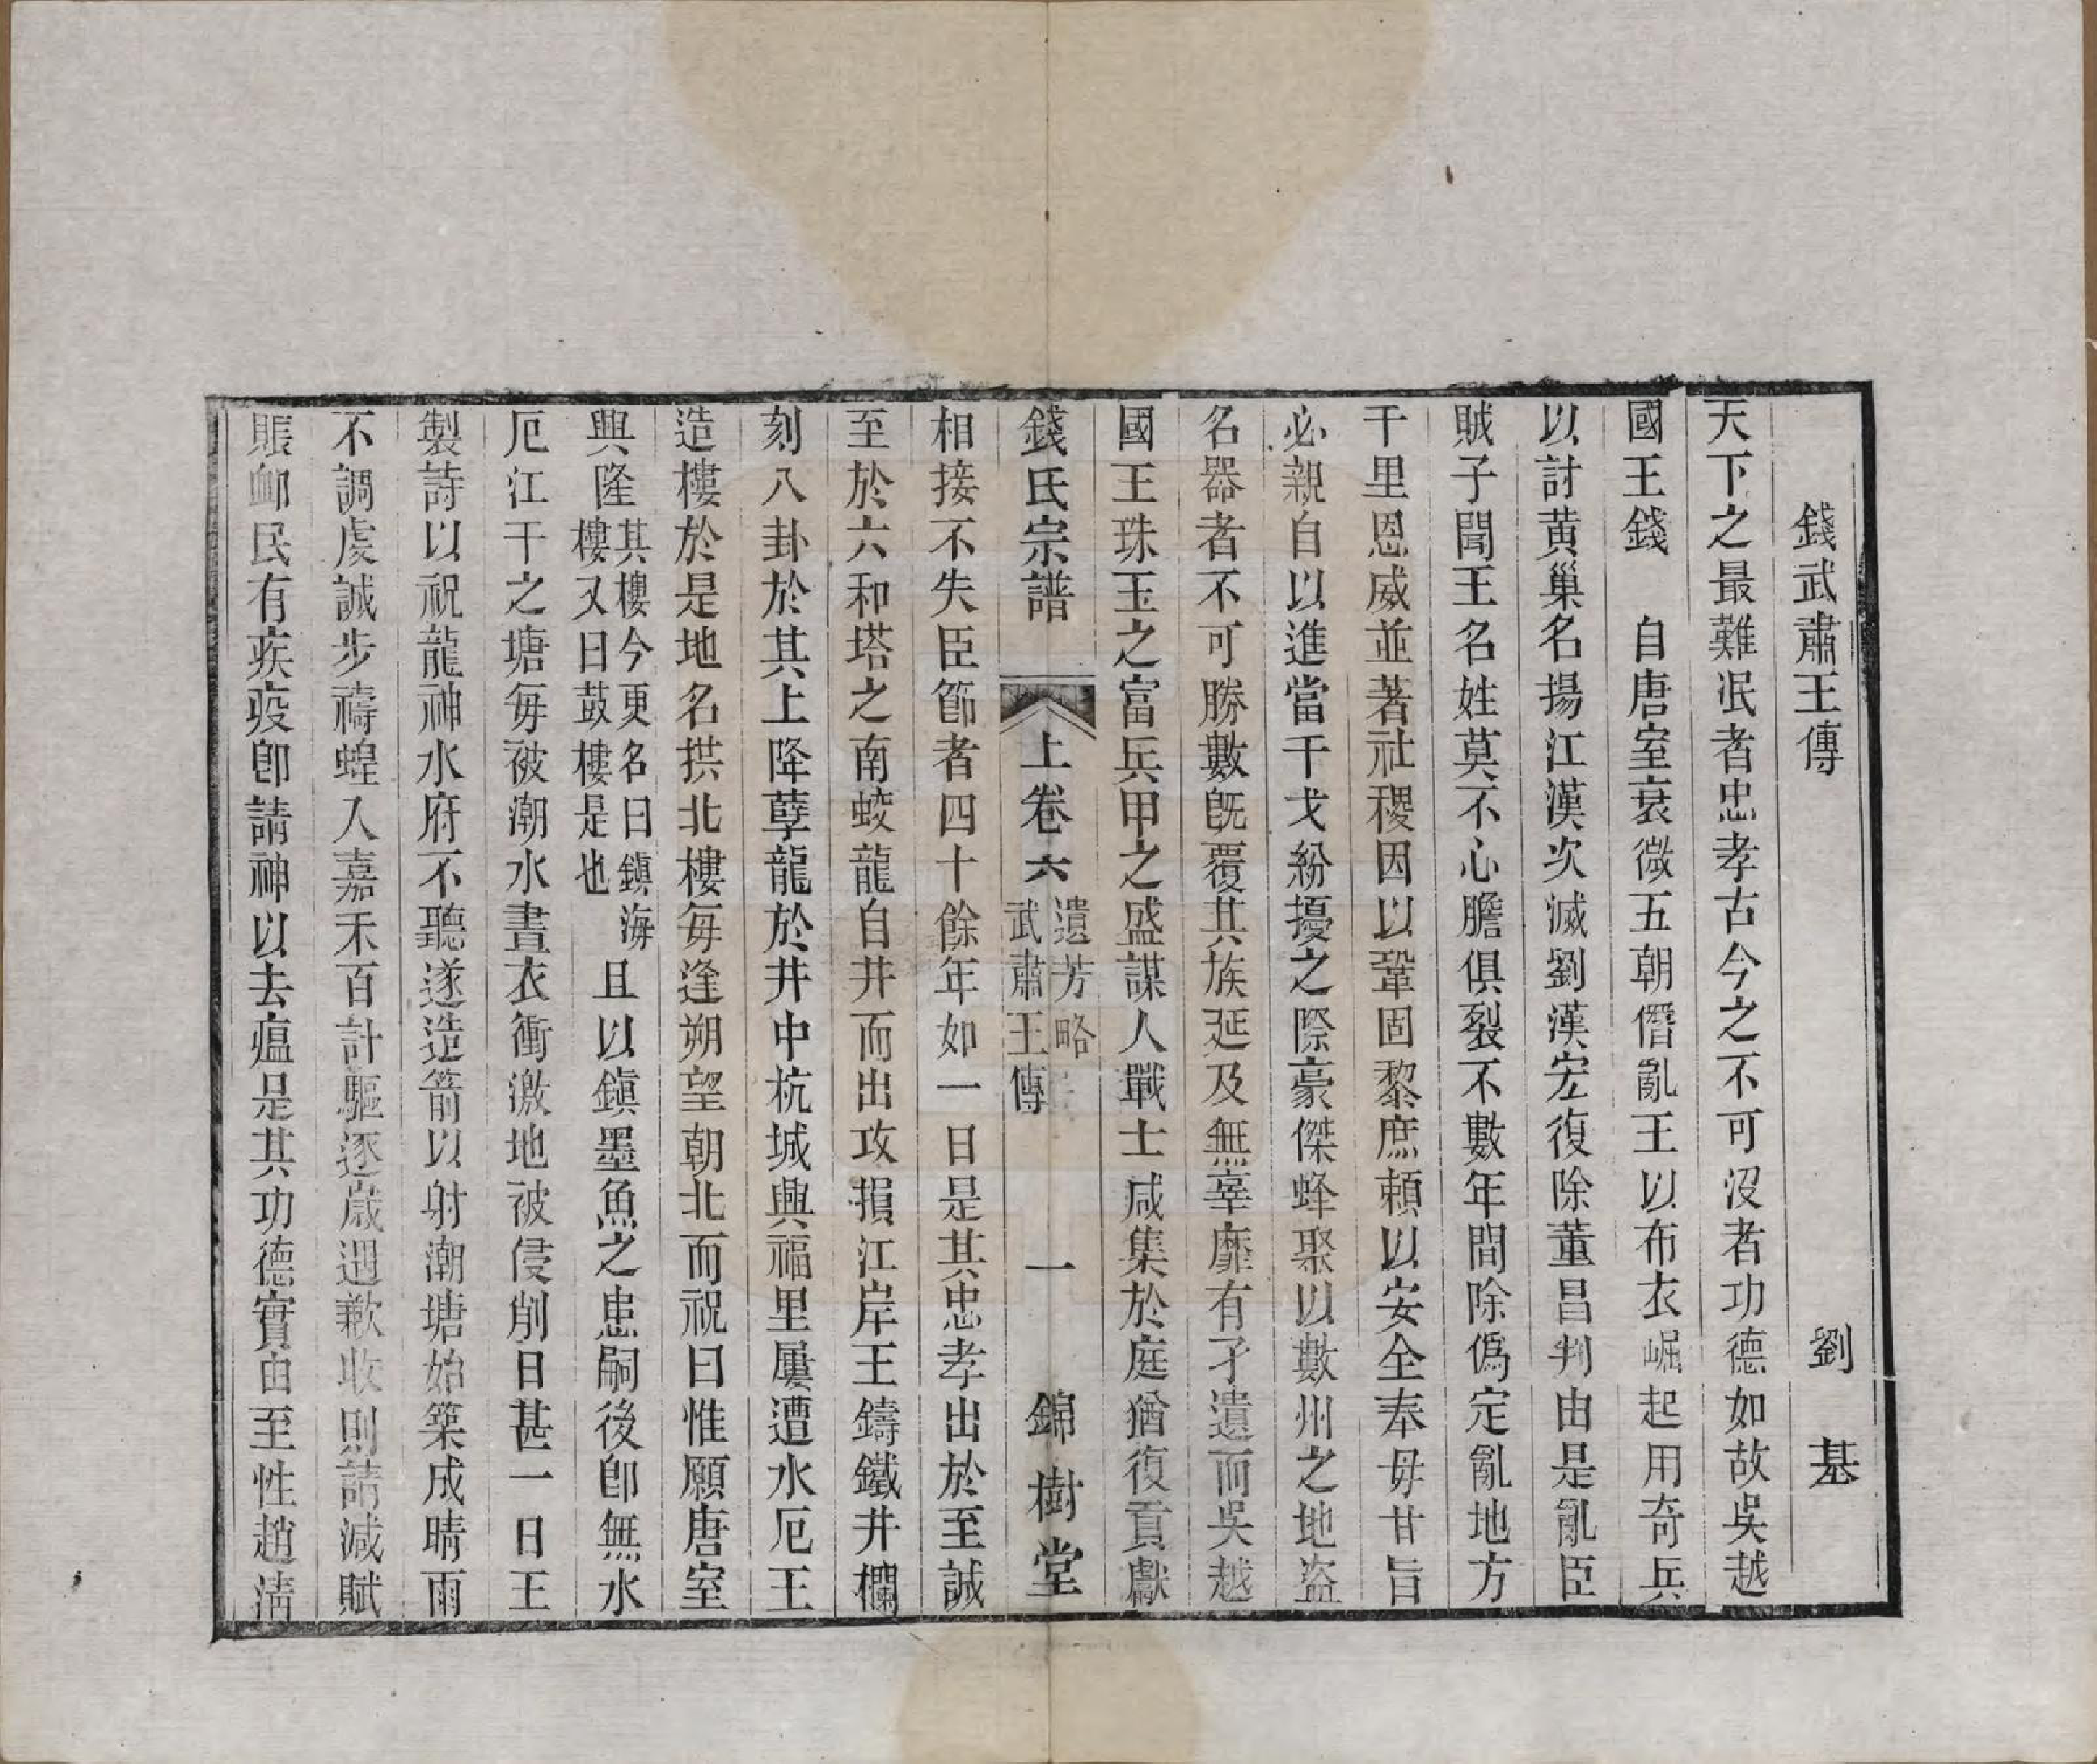 錢武肅王傳 劉 基
天下之最難泯者忠孝古今之不可沒者功德如故吳越
國王錢 自唐室衰微五朝僭亂王以布衣崛起用奇兵
以討黃巢名揚江漢次滅劉漢宏復除董昌判由是亂臣
賊子聞王名姓莫不心膽俱裂不數年間除僞定亂地方
千里恩威並著社稷因以鞏固黎庶賴以安全奉毋甘旨
必親自以進當干戈紛擾之際豪傑蜂聚以數州之地盜
名器者不可勝數旣覆其族延及無辜靡有孑遺而吳越
國王珠玉之富兵甲之盛謀人戰士咸集於庭猶復貢獻
錢氏宗譜 上卷六 遺芳略 武肅王傳 一 錦樹堂
相接不失臣節者四十餘年如一日是其忠孝出於至誠
至於六和塔之南蛟龍自井而出攻損江岸王鑄鐵井欄
刻八卦於其上降孽龍於井中杭城興福里屢遭水厄王
造樓於是地名拱北樓每逢朔望朝北而祝曰惟願唐室
興隆其樓今更名曰鎭海樓又曰鼓樓是也且以鎭墨魚之患嗣後卽無水
厄江干之塘每被潮水晝衣衝激地被侵削日甚一日王
製詩以祝龍神水府不聽遂造箭以射潮塘始築成晴雨
不調虔誠步禱蝗入嘉禾百計驅逐歲遇歉收則請減賦
賬卹民有疾疫卽請神以去瘟是其功德實由至性趙淸